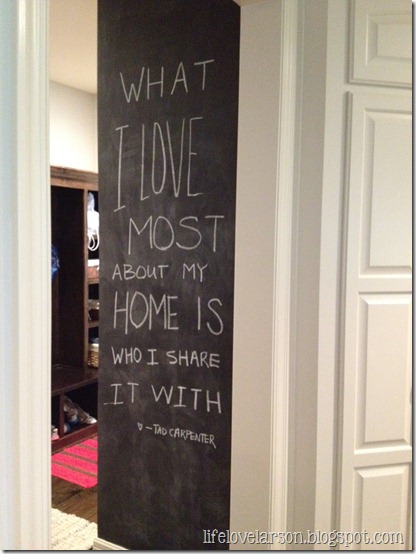 WHAT
I LOVE
MOST
ABOUT MY
HOME IS
WHO I SHARE
IT WITH
♡ -TAD CARPENTER
lifelovelarson.blogspot.com